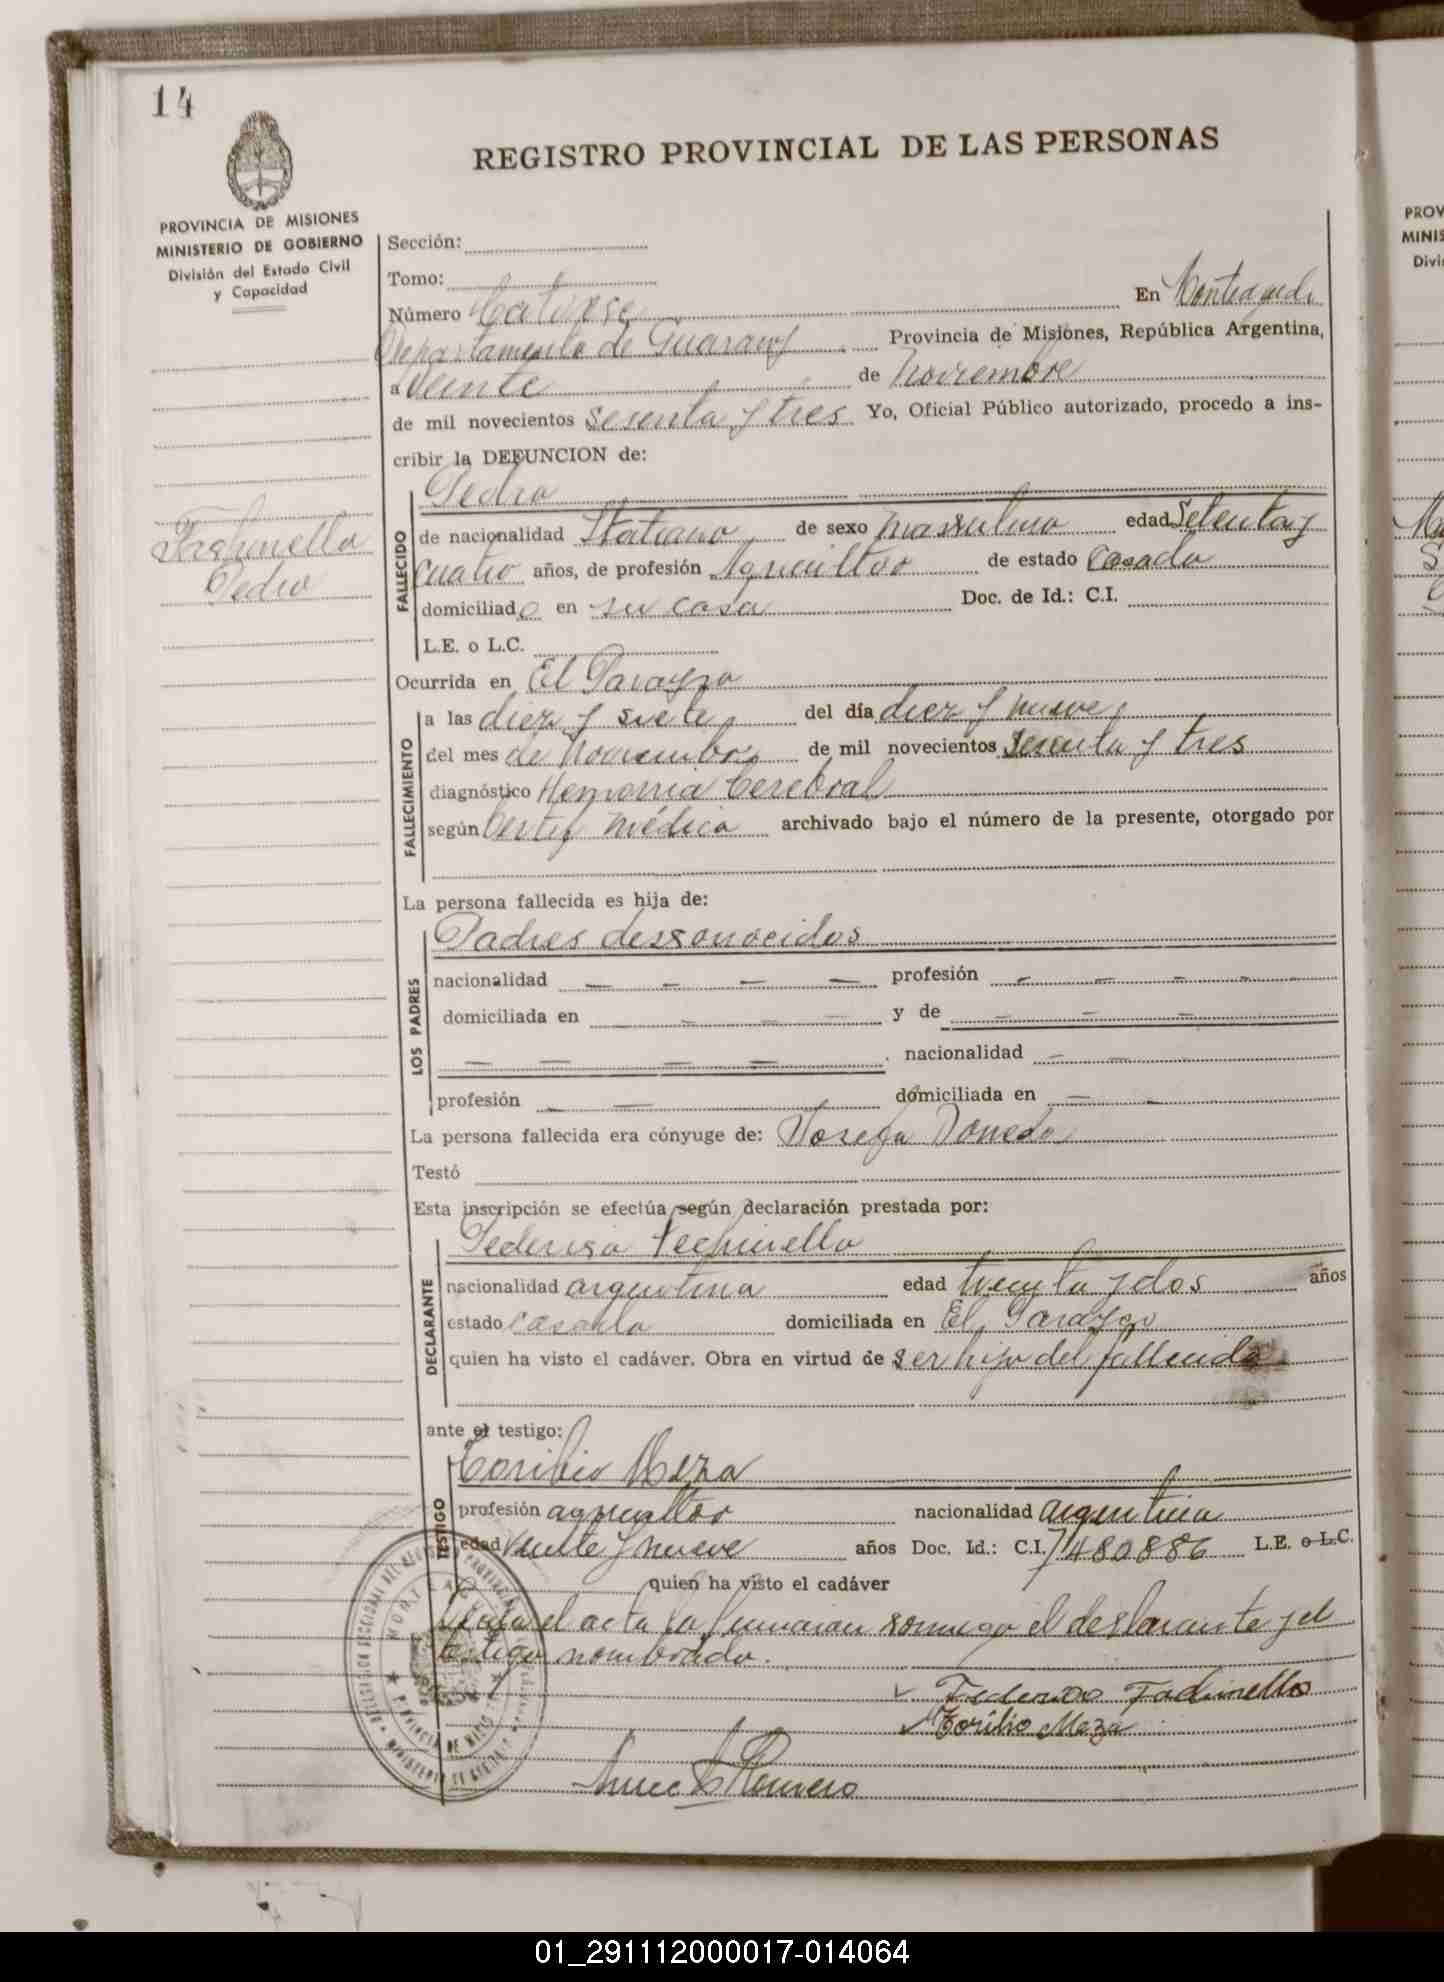 14
REGISTRO PROVINCIAL DE LAS PERSONAS
PROVINCIA DE MISIONES
MINISTERIO DE GOBIERNO
División del Estado Civil
y Capacidad
Sección:
Tomo:
Número Catorse En Monteagudo
Departamento de Guarany Provincia de Misiones, República Argentina,
a Veinte de Noviembre
de mil novecientos Sesenta y tres Yo, Oficial Público autorizado, procedo a ins-
cribir la DEFUNCION de:
Pedro
Pedro
FALLECIDO
de nacionalidad Italiano de sexo masculino edad Setenta y
cuatro años, de profesión Agricultor de estado Casado
domiciliado en su casa Doc. de Id.: C.I.
L.E. o L.C.
Ocurrida en El Parayso
FALLECIMIENTO
a las diez y siete del día diez y nueve
del mes de Noviembre de mil novecientos Sesenta y tres
diagnóstico Hemorria Cerebral
según Certif Médico archivado bajo el número de la presente, otorgado por
La persona fallecida es hija de:
LOS PADRES
Padres desconocidos
nacionalidad — — — — profesión — — — —
domiciliada en — — — — y de — — —
— — — — . nacionalidad — —
profesión — — domiciliada en — —
La persona fallecida era cónyuge de: Josefa
Testó
Esta inscripción se efectúa según declaración prestada por:
DECLARANTE
Federico
nacionalidad argentina edad treinta y dos años
estado casado domiciliada en El Parayso
quien ha visto el cadáver. Obra en virtud de ser hijo del fallecido
ante el testigo:
TESTIGO
Toribio Meza
profesión agricultor nacionalidad argentina
edad Veinte y nueve años Doc. Id.: C.I. 7480886 L.E. o L.C.
quien ha visto el cadáver
el acta la firmaron conmigo el declarante y el
testigo nombrado.
Federico Fachinello
Toribio Meza
Romero
PROV
MINIS
Divi
01_291112000017-014064